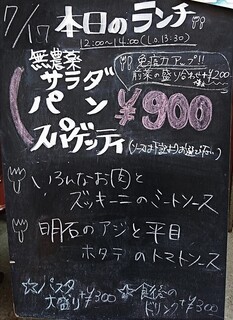 7/17 本日のランチ
12:00~14:00 (L.O.13:30)
無農薬
サラダ
パン
スパゲッティ
¥900
免疫力アップ!!
前菜の盛り合わせ+¥200
(ソースは下記よりお選び下さい)
いろんなお肉と
ズッキーニのミートソース
明石のアジと平目
ホタテのトマトソース
☆パスタ
大盛り+¥300
☆食後の
ドリンク+¥300